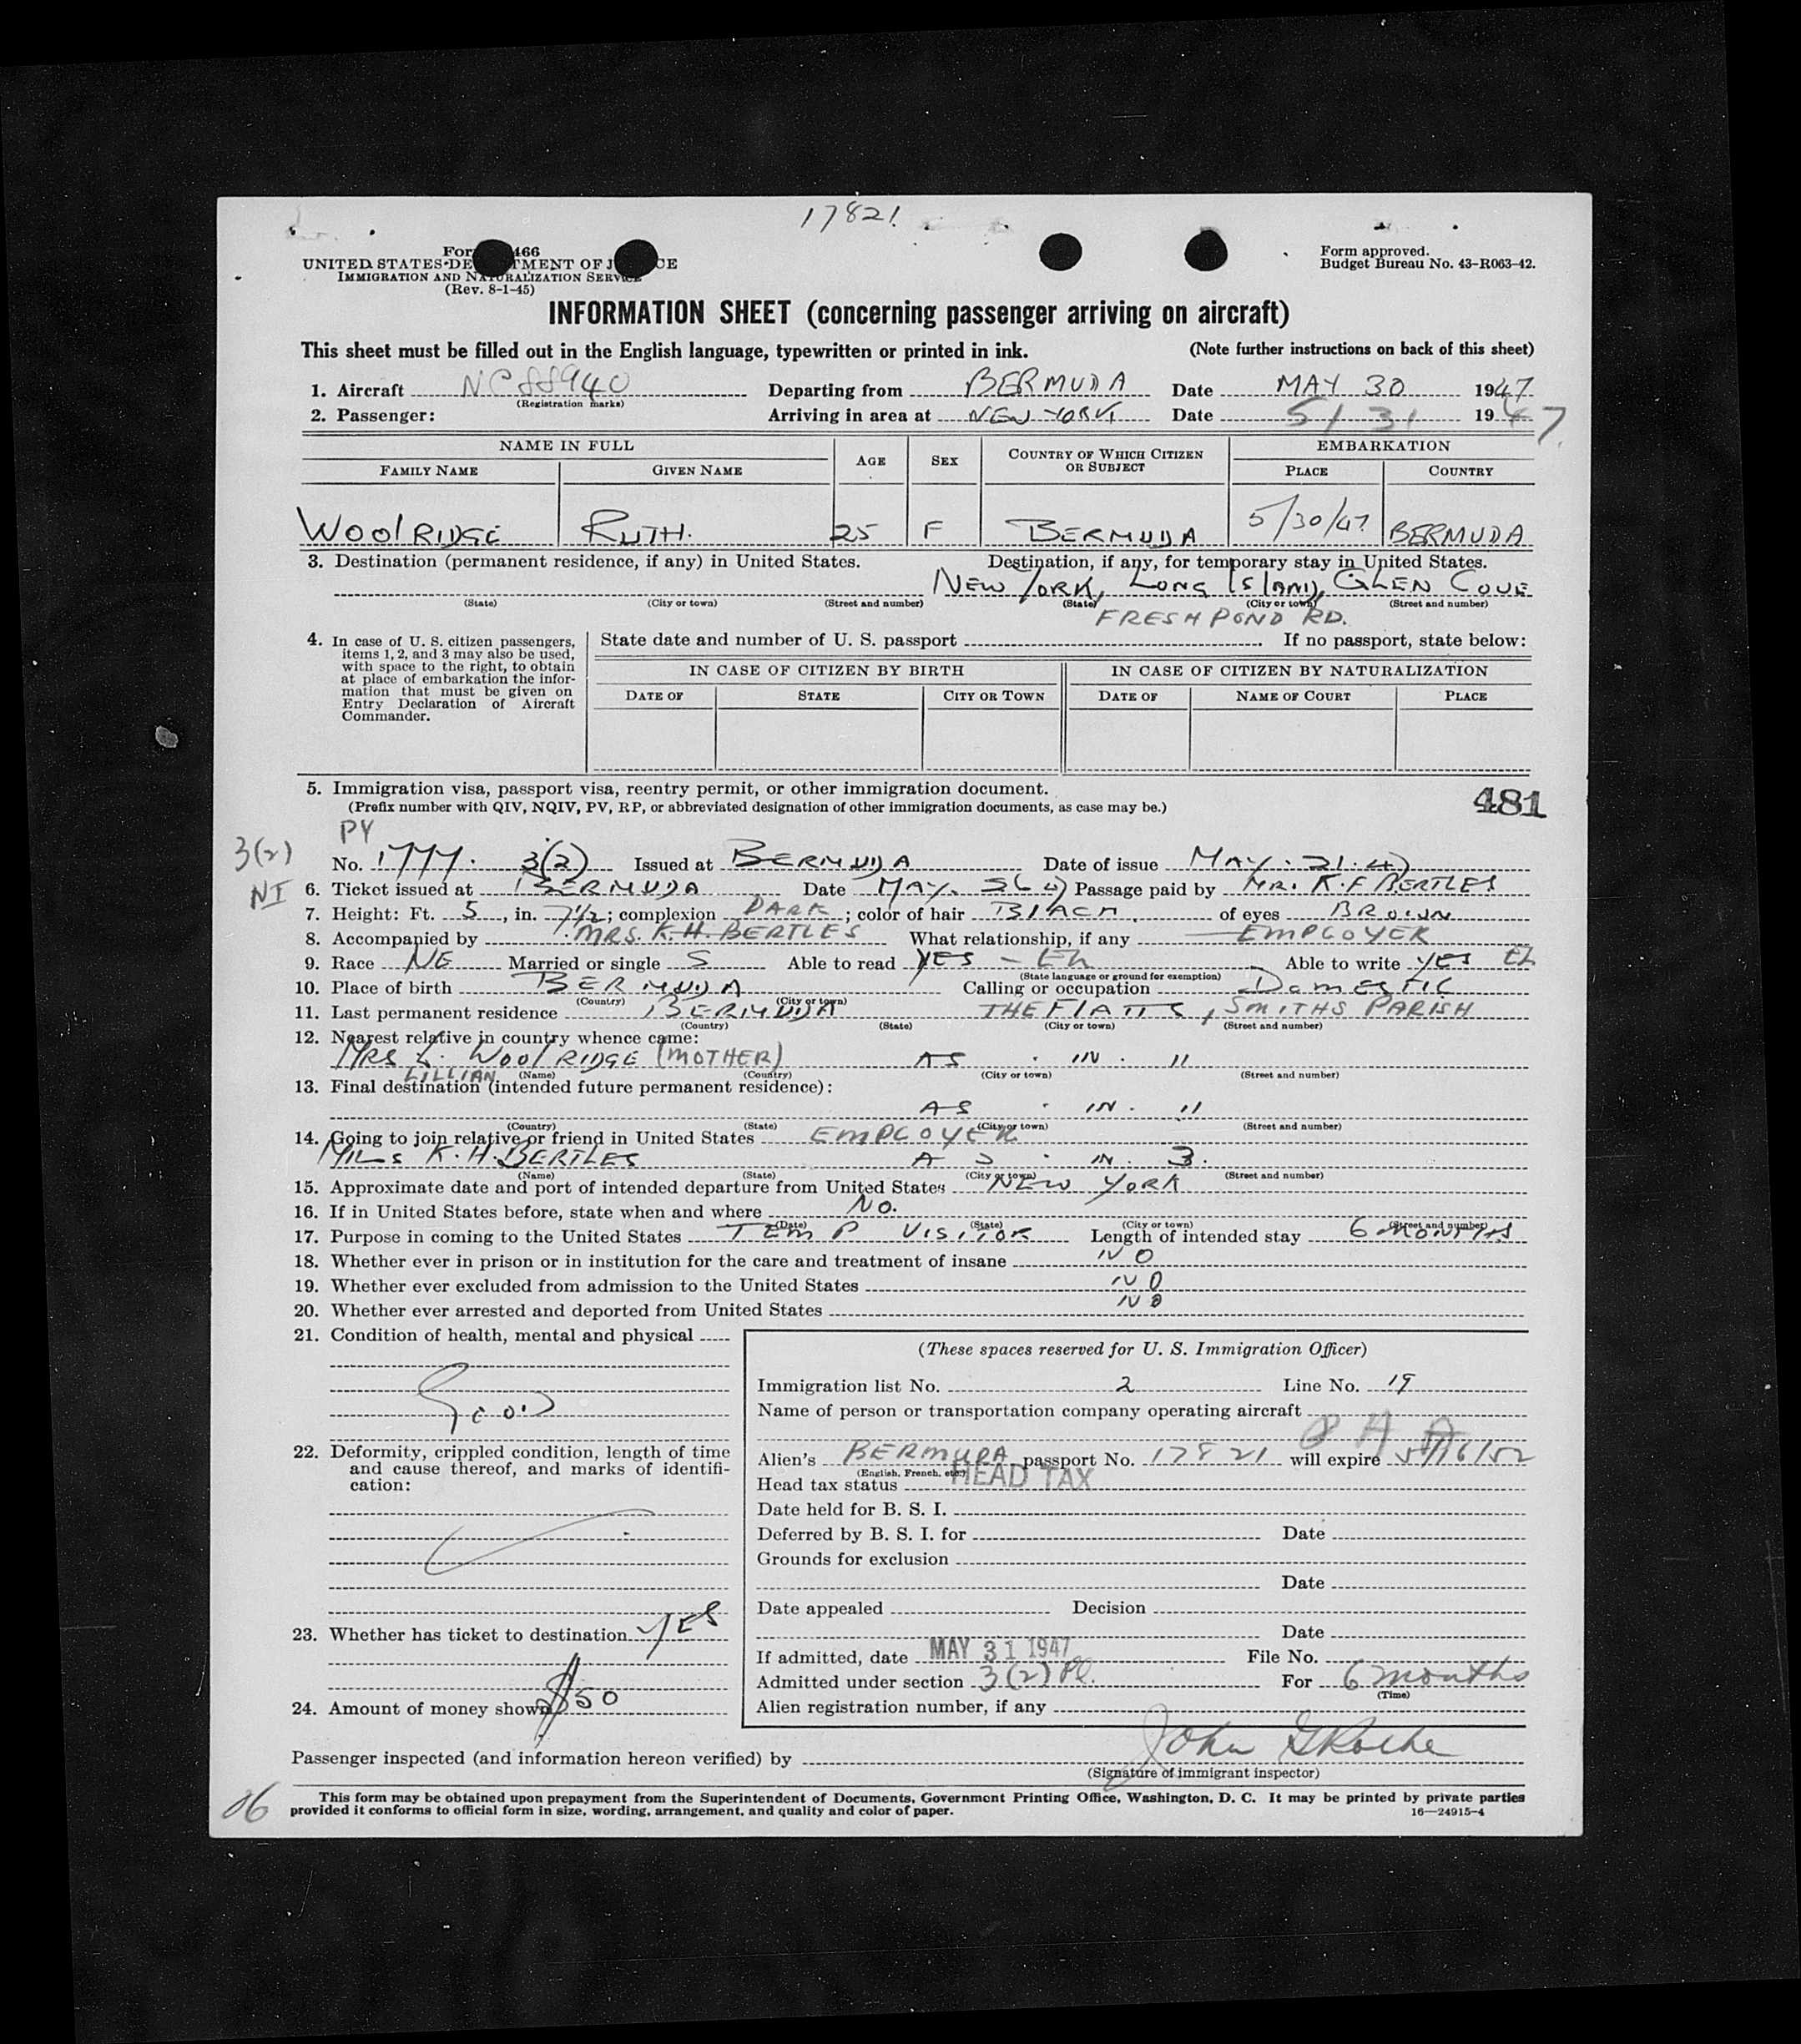 17821
Form 466
UNITED STATES DEPARTMENT OF JUSTICE
IMMIGRATION AND NATURALIZATION SERVICE
(Rev. 8-1-45)
Form approved.
Budget Bureau No. 43-R063-42.
INFORMATION SHEET (concerning passenger arriving on aircraft)
This sheet must be filled out in the English language, typewritten or printed in ink. (Note further instructions on back of this sheet)
1. Aircraft NC88940 Departing from BERMUDA Date MAY 30 1947
(Registration marks)
2. Passenger: Arriving in area at NEW YORK Date 5/31 1947
NAME IN FULL AGE SEX COUNTRY OF WHICH CITIZEN OR SUBJECT EMBARKATION
FAMILY NAME GIVEN NAME PLACE COUNTRY
WOOLRIDGE RUTH. 25 F BERMUDA 5/30/47 BERMUDA
3. Destination (permanent residence, if any) in United States. Destination, if any, for temporary stay in United States.
NEW YORK, LONG ISLAND, GLEN COVE
(State) (City or town) (Street and number) (State) (City or town) (Street and number)
FRESH POND RD.
4. In case of U. S. citizen passengers, items 1, 2, and 3 may also be used, with space to the right, to obtain at place of embarkation the information that must be given on Entry Declaration of Aircraft Commander.
State date and number of U. S. passport If no passport, state below:
IN CASE OF CITIZEN BY BIRTH IN CASE OF CITIZEN BY NATURALIZATION
DATE OF STATE CITY OR TOWN DATE OF NAME OF COURT PLACE
5. Immigration visa, passport visa, reentry permit, or other immigration document.
(Prefix number with QIV, NQIV, PV, RP, or abbreviated designation of other immigration documents, as case may be.)
481
PV
3(2)
No. 1777. 3(2) Issued at BERMUDA Date of issue MAY. 21. 47
NI
6. Ticket issued at BERMUDA Date MAY. Passage paid by MR. K.F BERTLES
7. Height: Ft. 5, in. 7 1/2; complexion DARK; color of hair BLACK. of eyes BROWN
8. Accompanied by MRS. K.H. BERTLES What relationship, if any EMPLOYER
9. Race NE Married or single S Able to read YES - Eh Able to write YES Eh
(State language or ground for exemption)
10. Place of birth BERMUDA Calling or occupation DOMESTIC
(Country) (City or town)
11. Last permanent residence BERMUDA THE FLATTS, SMITHS PARISH
(Country) (State) (City or town) (Street and number)
12. Nearest relative in country whence came:
MRS L. WOOLRIDGE (MOTHER) AS IN. 11
LILLIAN (Name) (Country) (City or town) (Street and number)
13. Final destination (intended future permanent residence):
AS IN. 11
(Country) (State) (City or town) (Street and number)
14. Going to join relative or friend in United States EMPLOYER
K.H. BERTLES AS IN. 3.
(Name) (State) (City or town) (Street and number)
15. Approximate date and port of intended departure from United States NEW YORK
16. If in United States before, state when and where NO.
(Date) (State) (City or town) (Street and number)
17. Purpose in coming to the United States TEMP VISITOR Length of intended stay 6 MONTHS
18. Whether ever in prison or in institution for the care and treatment of insane NO
19. Whether ever excluded from admission to the United States NO
20. Whether ever arrested and deported from United States NO
21. Condition of health, mental and physical
GOOD
22. Deformity, crippled condition, length of time and cause thereof, and marks of identification:
23. Whether has ticket to destination YES
24. Amount of money shown $50
(These spaces reserved for U. S. Immigration Officer)
Immigration list No. 2 Line No. 19
Name of person or transportation company operating aircraft
Alien's BERMUDA passport No. 17821 will expire 5/16/52
(English, French, etc.)
Head tax status HEAD TAX
Date held for B. S. I.
Deferred by B. S. I. for Date
Grounds for exclusion
Date
Date appealed Decision
Date
If admitted, date MAY 31 1947 File No.
Admitted under section 3(2) Pl. For 6 months
(Time)
Alien registration number, if any
Passenger inspected (and information hereon verified) by John G Roche
(Signature of immigrant inspector)
This form may be obtained upon prepayment from the Superintendent of Documents, Government Printing Office, Washington, D. C. It may be printed by private parties
provided it conforms to official form in size, wording, arrangement, and quality and color of paper. 16—24915-4
06